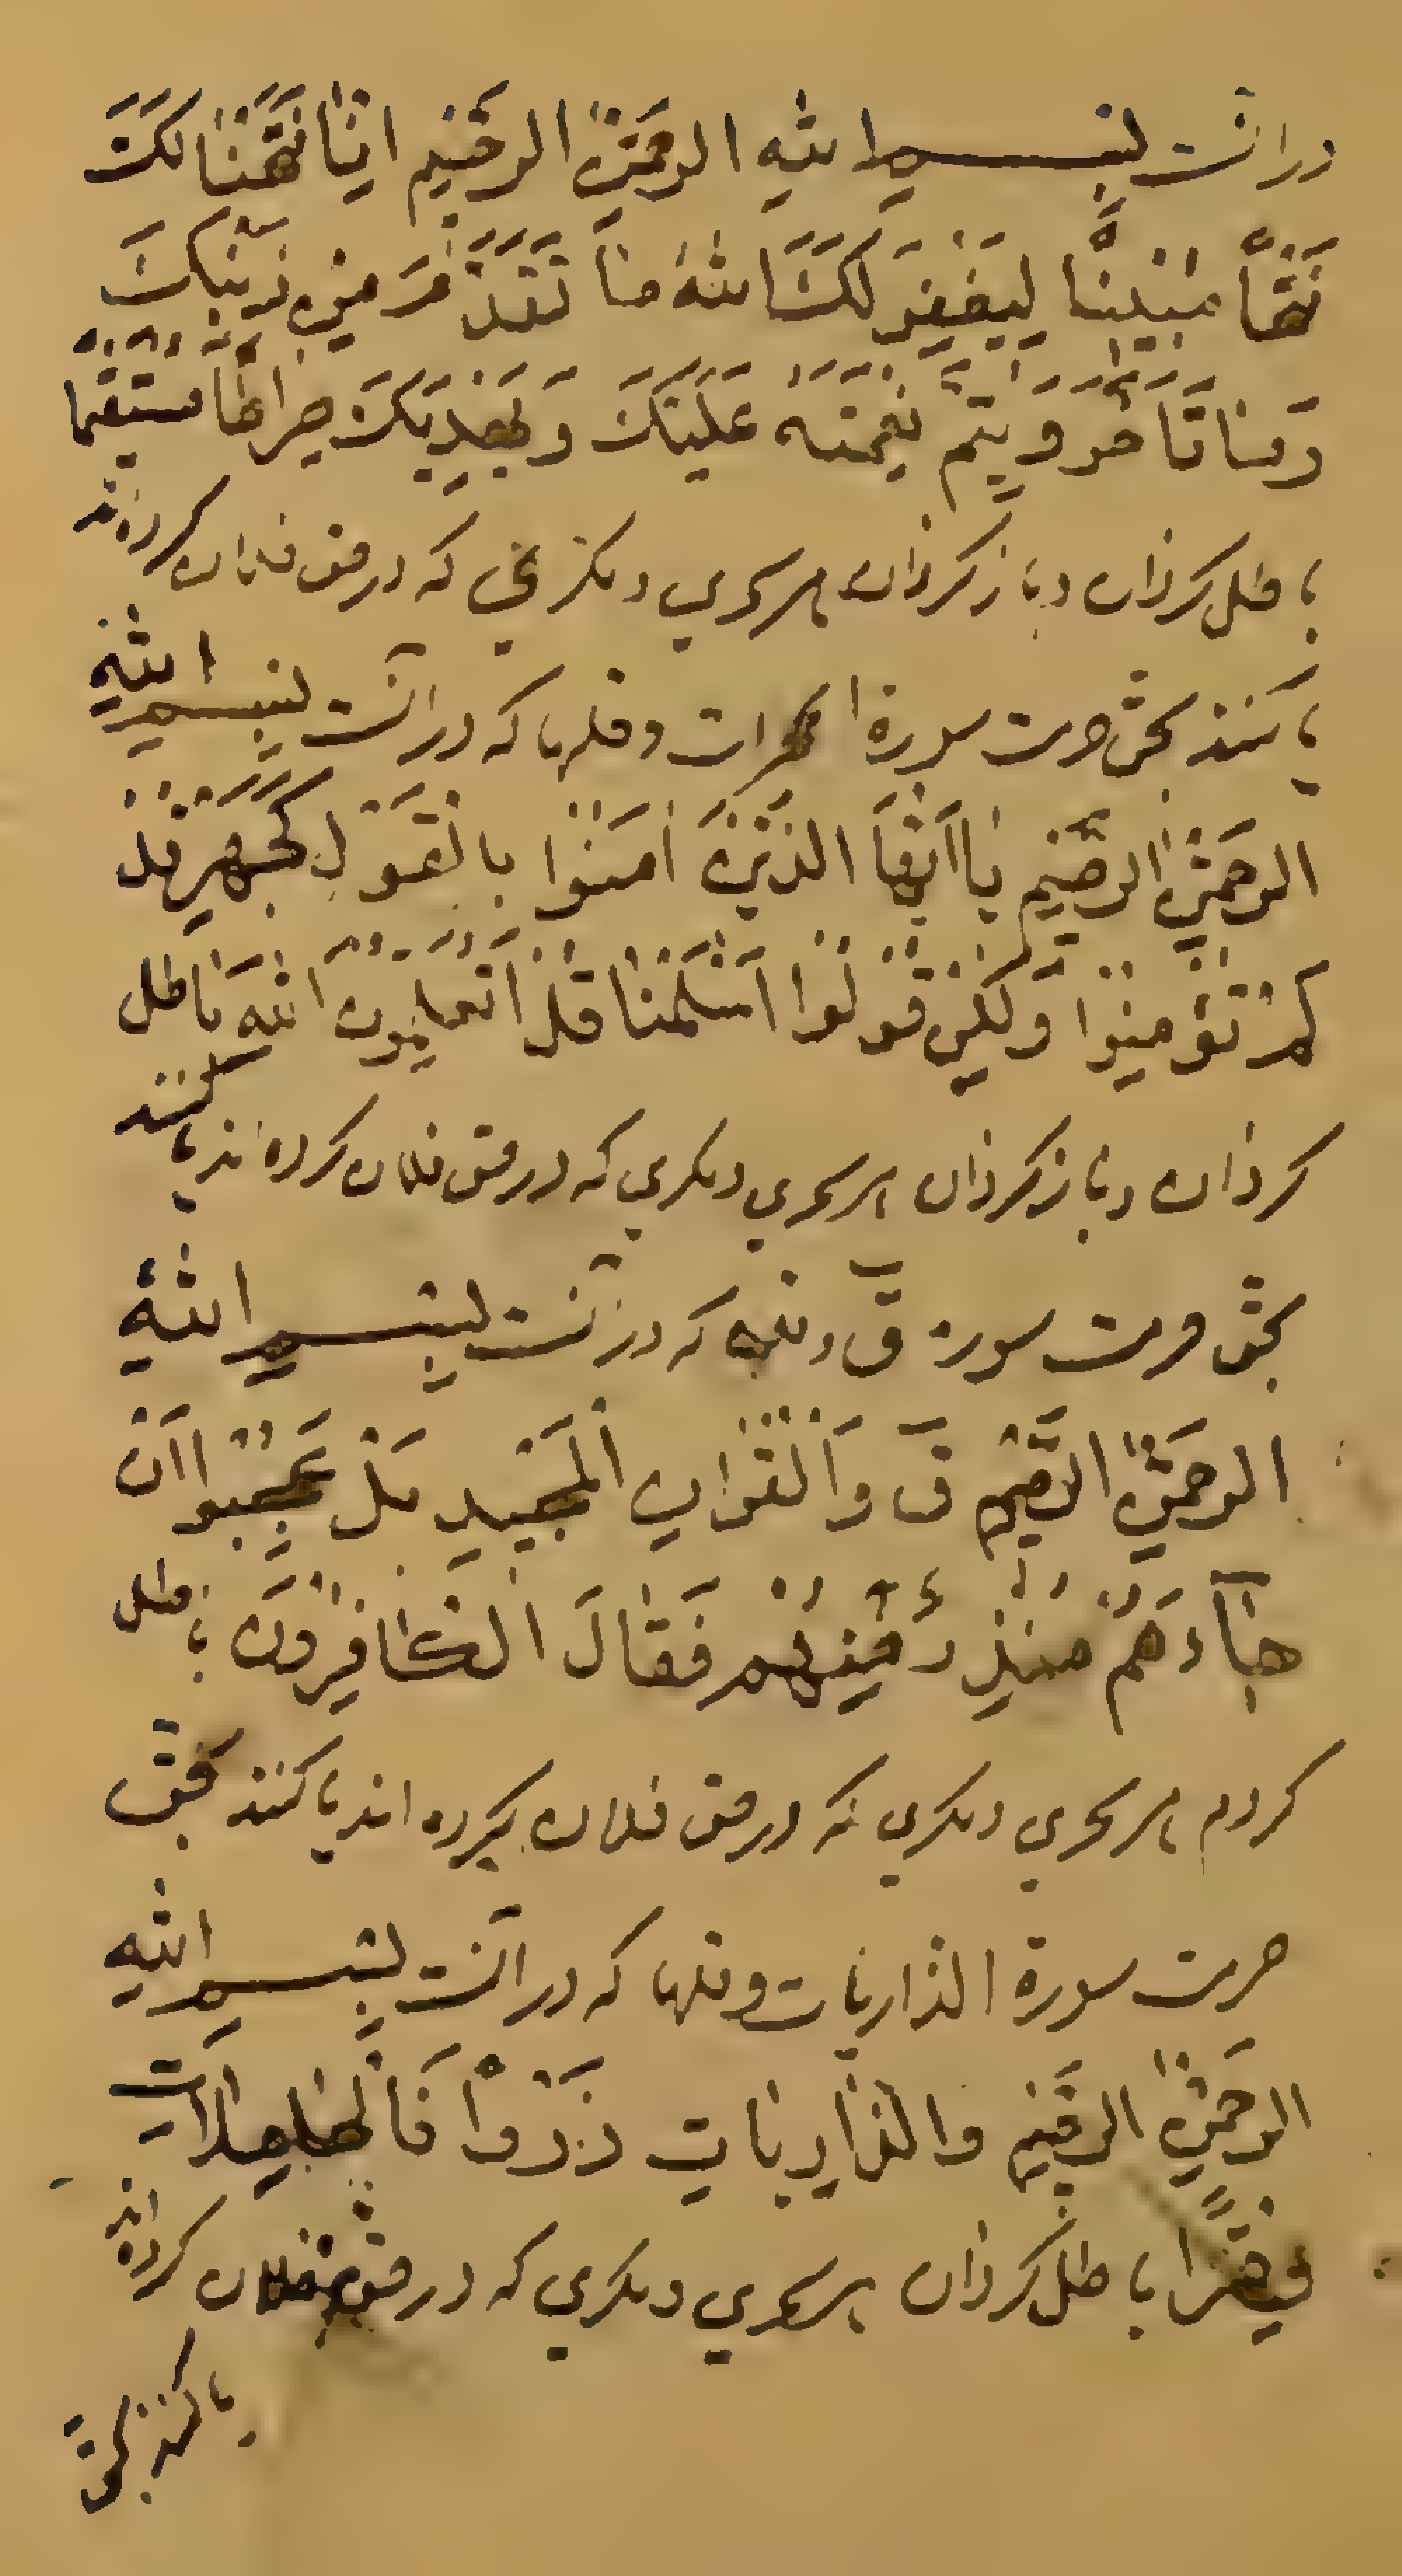 درانست بِسْمِ اللهِ الرحمٰن الرحيم انا فتحنا لَكَ
فَتْحًا مُبِينًا لِيَغْفِرَ لَكَ اللهُ مَا تَقَدَّمَ مِنْ ذَنْبِكَ
وَمَا تَأَخَّرَ وَيُتِمَّ نِعْمَتَهُ عَلَيْكَ وَيَهْدِيَكَ صِرَاطًا مُسْتَقِيمًا
باطل كرذان و باز كرذان هر سحرى كه در حق فلان كرده اند
يا كنند بحق حرمت سورة الحجرات و فلها كه درانست بسم اللهِ
الرحمٰن الرحيم يَا اَيُّهَا الَّذِينَ اٰمَنُوا بِالْقَوْلِ كَجَهْرِ قُلْ
لَمْ تُؤْمِنُوا وَلٰكِنْ قُولُوا اَسْلَمْنَا قُلْ اَتُعَلِّمُونَ اللهَ باطل
كرذان و باز كرذان هر سحري ديكري كه در حق فلان كرده اند يا كنند
بحق حرمت سوره ق و كه درانست بسم اللهِ
الرحمٰن الرَّحِيم قٓ وَالْقُرْاٰنِ الْمَجِيدِ بَلْ عَجِبُوا اَنْ
جَآءَهُمْ مُنْذِرٌ مِنْهُمْ فَقَالَ الْكَافِرُونَ باطل
كردم هر سحري ديكري كه در حق فلان بكرده اند يا كنند بحق
حرمت سورة الذاريات و فلها كه درانست بسم اللهِ
الرحمٰن الرحيم والذَّارِيَاتِ ذَرْوًا فَالْحَامِلَاتِ
وِقْرًا باطل كرذان هر سحري ديكري كه در حق فلان كرده اند
يا كنند بحق